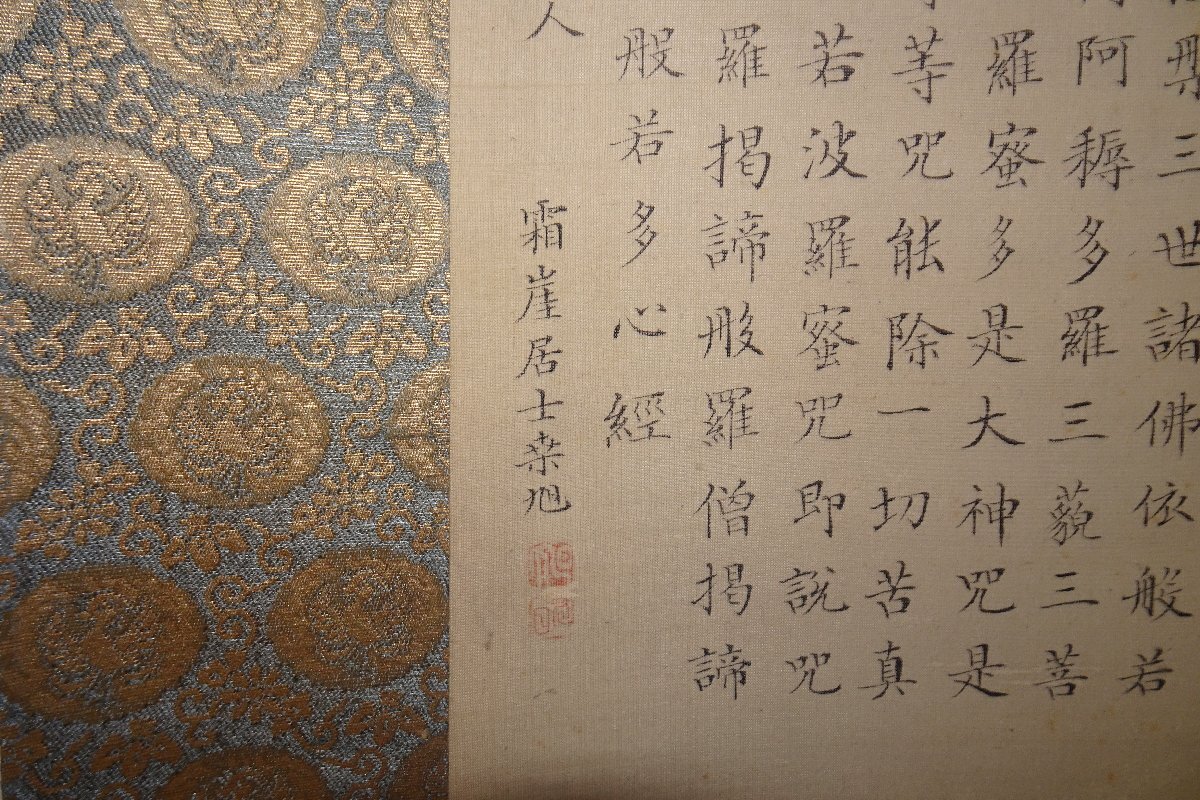 槃三世諸佛依般若
阿耨多羅三藐三菩
羅蜜多是大神咒是
等咒能除一切苦真
若波羅蜜咒即説咒
羅揭諦般羅僧揭諦
般若多心經
人
霜崖居士桒旭